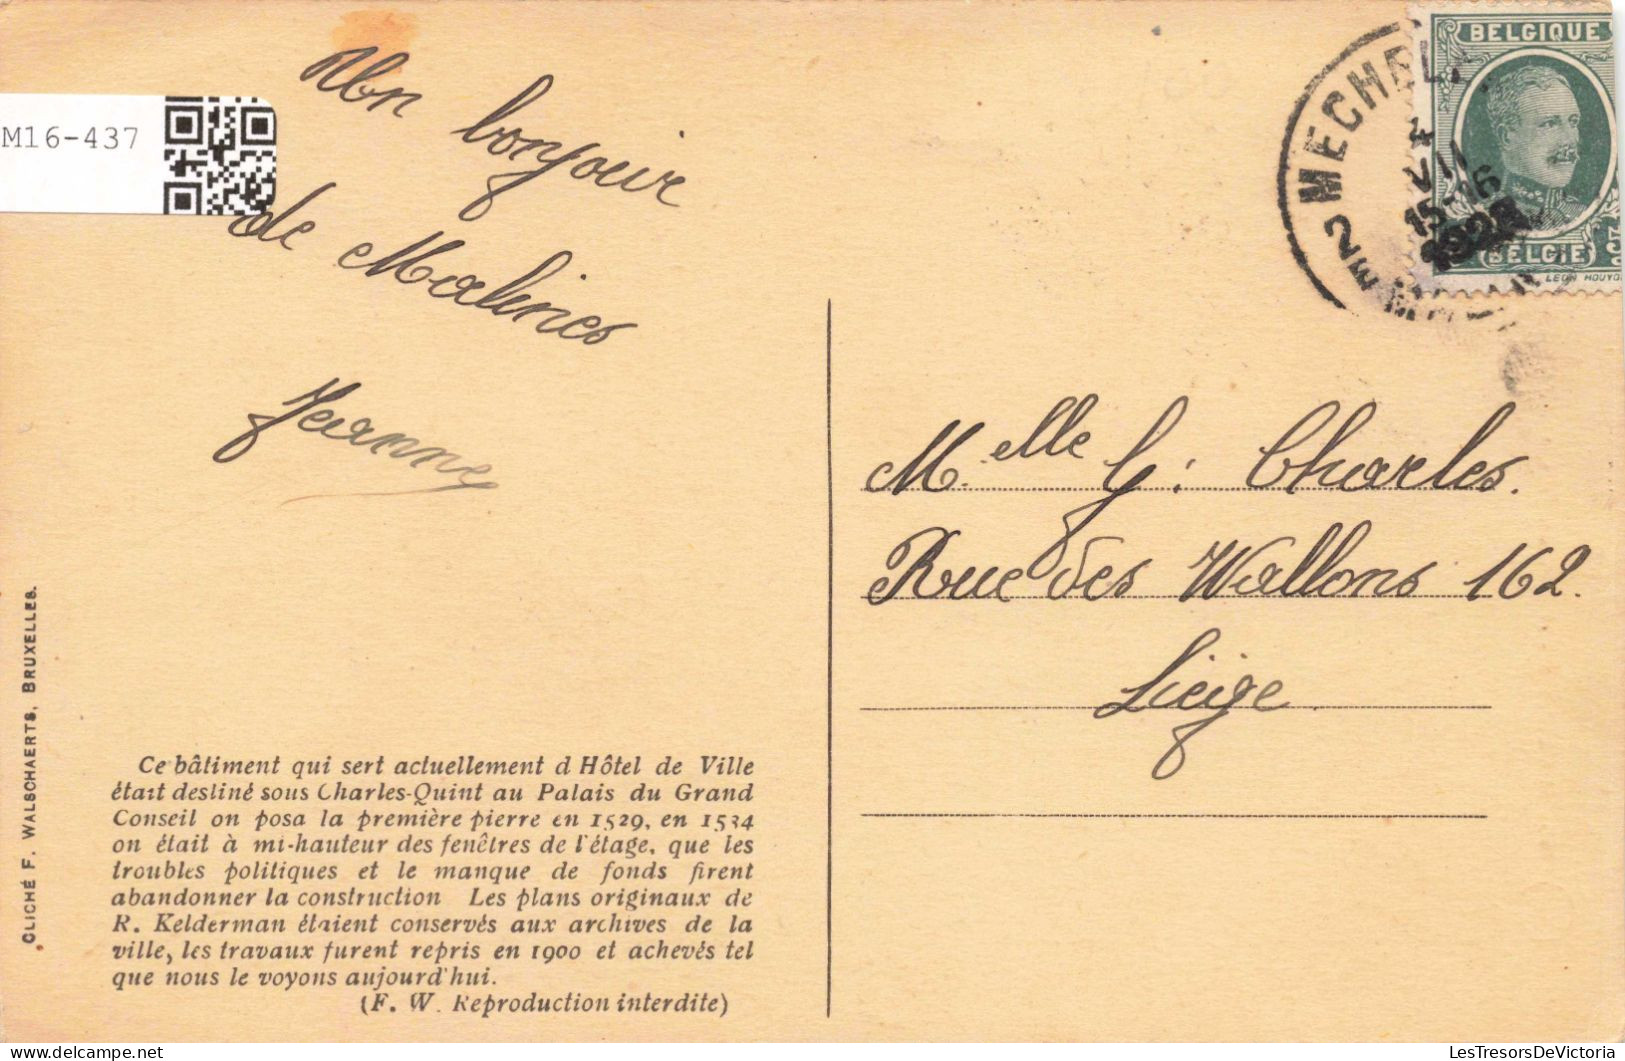 M16-437
Un bonjour
de Malines
Jeanne
BELGIQUE
BELGIE
LEON HOUYO
2 MECHEL
4
VII
15-16
M.elle G. Charles.
Rue des Wallons 162.
Liège.
Ce bâtiment qui sert actuellement d Hôtel de Ville
était destiné sous Charles-Quint au Palais du Grand
Conseil on posa la première pierre en 1529, en 1534
on était à mi-hauteur des fenêtres de l'étage, que les
troubles politiques et le manque de fonds firent
abandonner la construction Les plans originaux de
R. Kelderman étaient conservés aux archives de la
ville, les travaux furent repris en 1900 et achevés tel
que nous le voyons aujourd'hui.
(F. W. Reproduction interdite)
CLICHÉ F. WALSCHAERTS, BRUXELLES.
LesTresorsDeVictoria